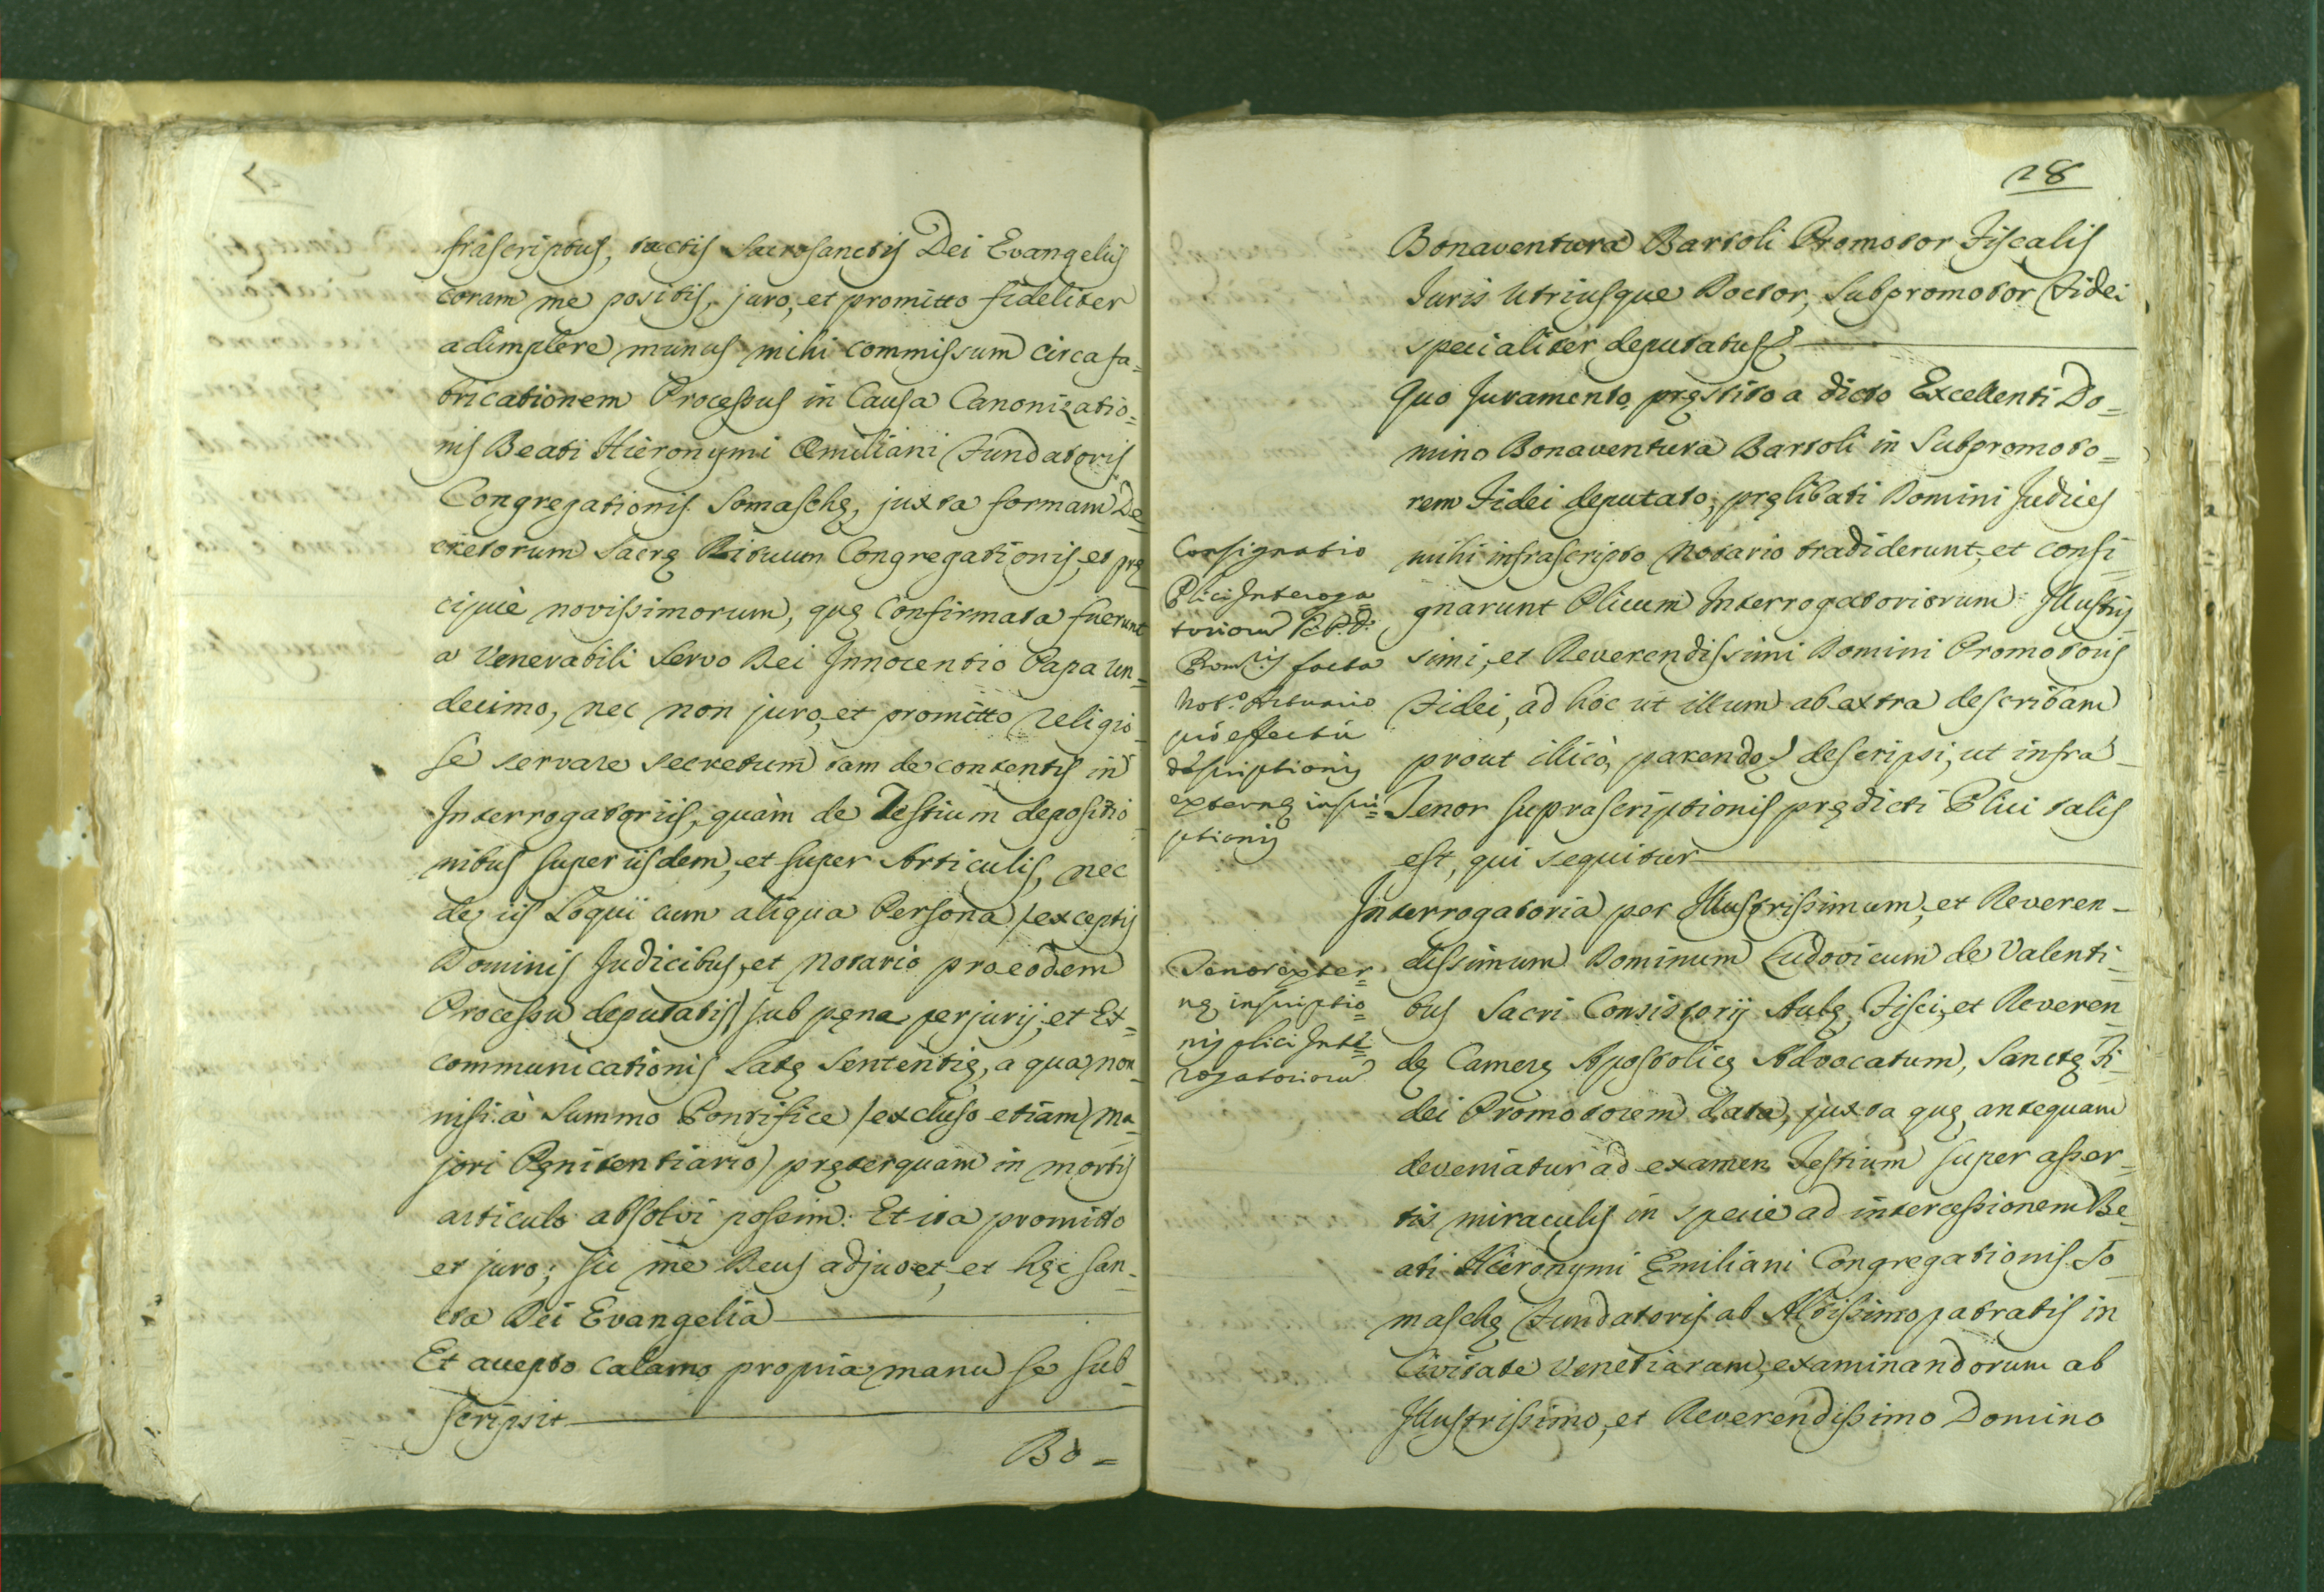 frascriptus, tactis Sacrosanctis Dei Evangelijs
coram me positis, juro, et promitto fideliter
adimplere munus mihi commissum circa fa=
bricationem Processus in Causa Canonizatio=
nis Beati Hieronymi Æmiliani Fundatoris
Congregationis Somaschę, juxta formam De=
cretorum Sacrę Rituum Congregationis, et prę
cipuè novissimorum, quę confirmata fuerunt
a Venerabili Servo Dei Innocentio Papa Un=
decimo, nec non juro, et promitto religio=
sè servare secretum tam de contentis in
Interrogatorijs, quàm de Testium depositio=
nibus super iisdem, et super Articulis, nec
de iis Loqui cum aliqua Persona (exceptis
Dominis Judicibus, et Notario pro eodem
Processu deputatis) sub pęna perjurij, et Ex=
communicationis Latę Sententię, a qua non=
nisi à Summo Pontifice (excluso etiam Ma=
jori Pęnitentiario) pręterquam in mortis
articulo absolvi possim: Et ita promitto
et juro; sic me Deus adjuvet, et hęc San=
cta Dei Evangelia
Et accepto calamo propria manu se sub=
scripsit
Bo=
28
Bonaventura Bartoli Promotor Fiscalis
Juris Utriusque Doctor, Subpromotor Fidei
specialiter deputatus
Quo Juramento pręstito a dicto Excellenti Do=
mino Bonaventura Bartoli in Subpromoto=
rem Fidei deputato, pręlibati Domini Judices
mihi infrascripto Notario tradiderunt, et consi=
gnarunt Plicum Interrogatoriorum Illustris=
simi, et Reverendissimi Domini Promotoris
Fidei, ad hoc ut illum ab extra describam
prout illicò, parendo, descripsi, ut infra
Tenor suprascriptionis prędicti Plici talis
est, qui sequitur
Interrogatoria per Illustrissimum, et Reveren=
dissimum Dominum Ludovicum de Valenti=
bus Sacri Consistorij Aulę, Fisci, et Reveren=
dę Camerę Apostolicę Advocatum, Sanctę Fi=
dei Promotorem data, juxta quę, antequam
deveniatur ad examen Testium super asser=
tis miraculis in specie ad intercessionem Be=
ati Hieronymi Ęmiliani Congregationis So=
maschę Fundatoris ab Altissimo patratis in
Civitate Venetiarum, examinandorum ab
Illustrissimo, et Reverendissimo Domino
Consignatio
Plici Interroga
toriorum
facta
Not.o Actuario
pro effectu
descriptionis
externę inscri=
ptionis
Tenor exter=
nę inscriptio=
nis plici Inte=
rogatoriorum